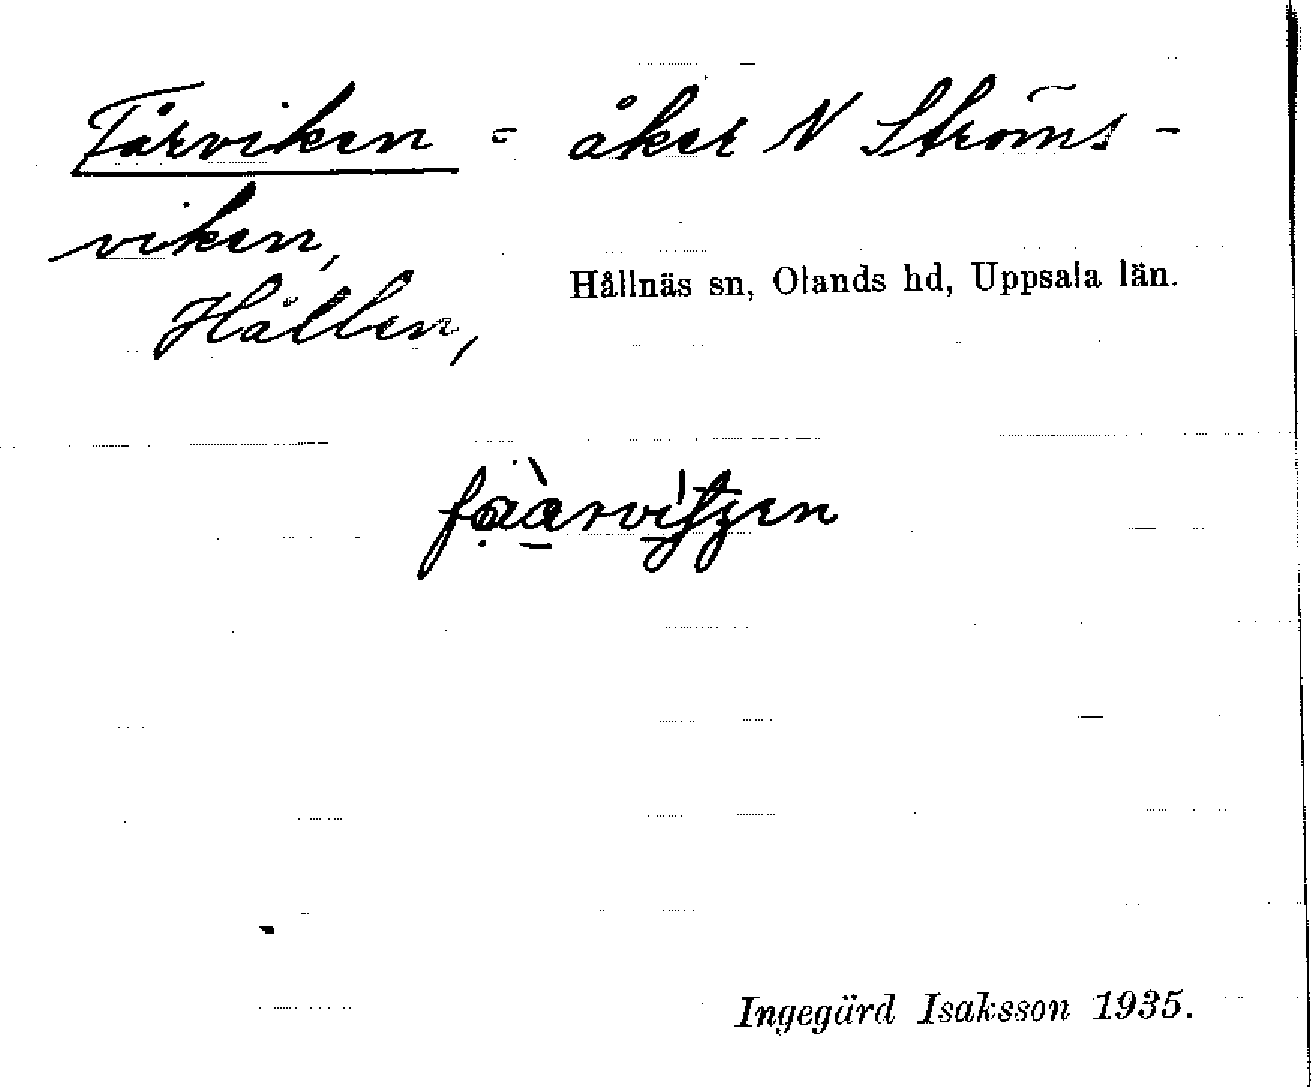 Fårviken = åker N Ströms-
viken,
Hållen,
Hållnäs sn, Olands hd, Uppsala län.
Ingegärd Isaksson 1935.